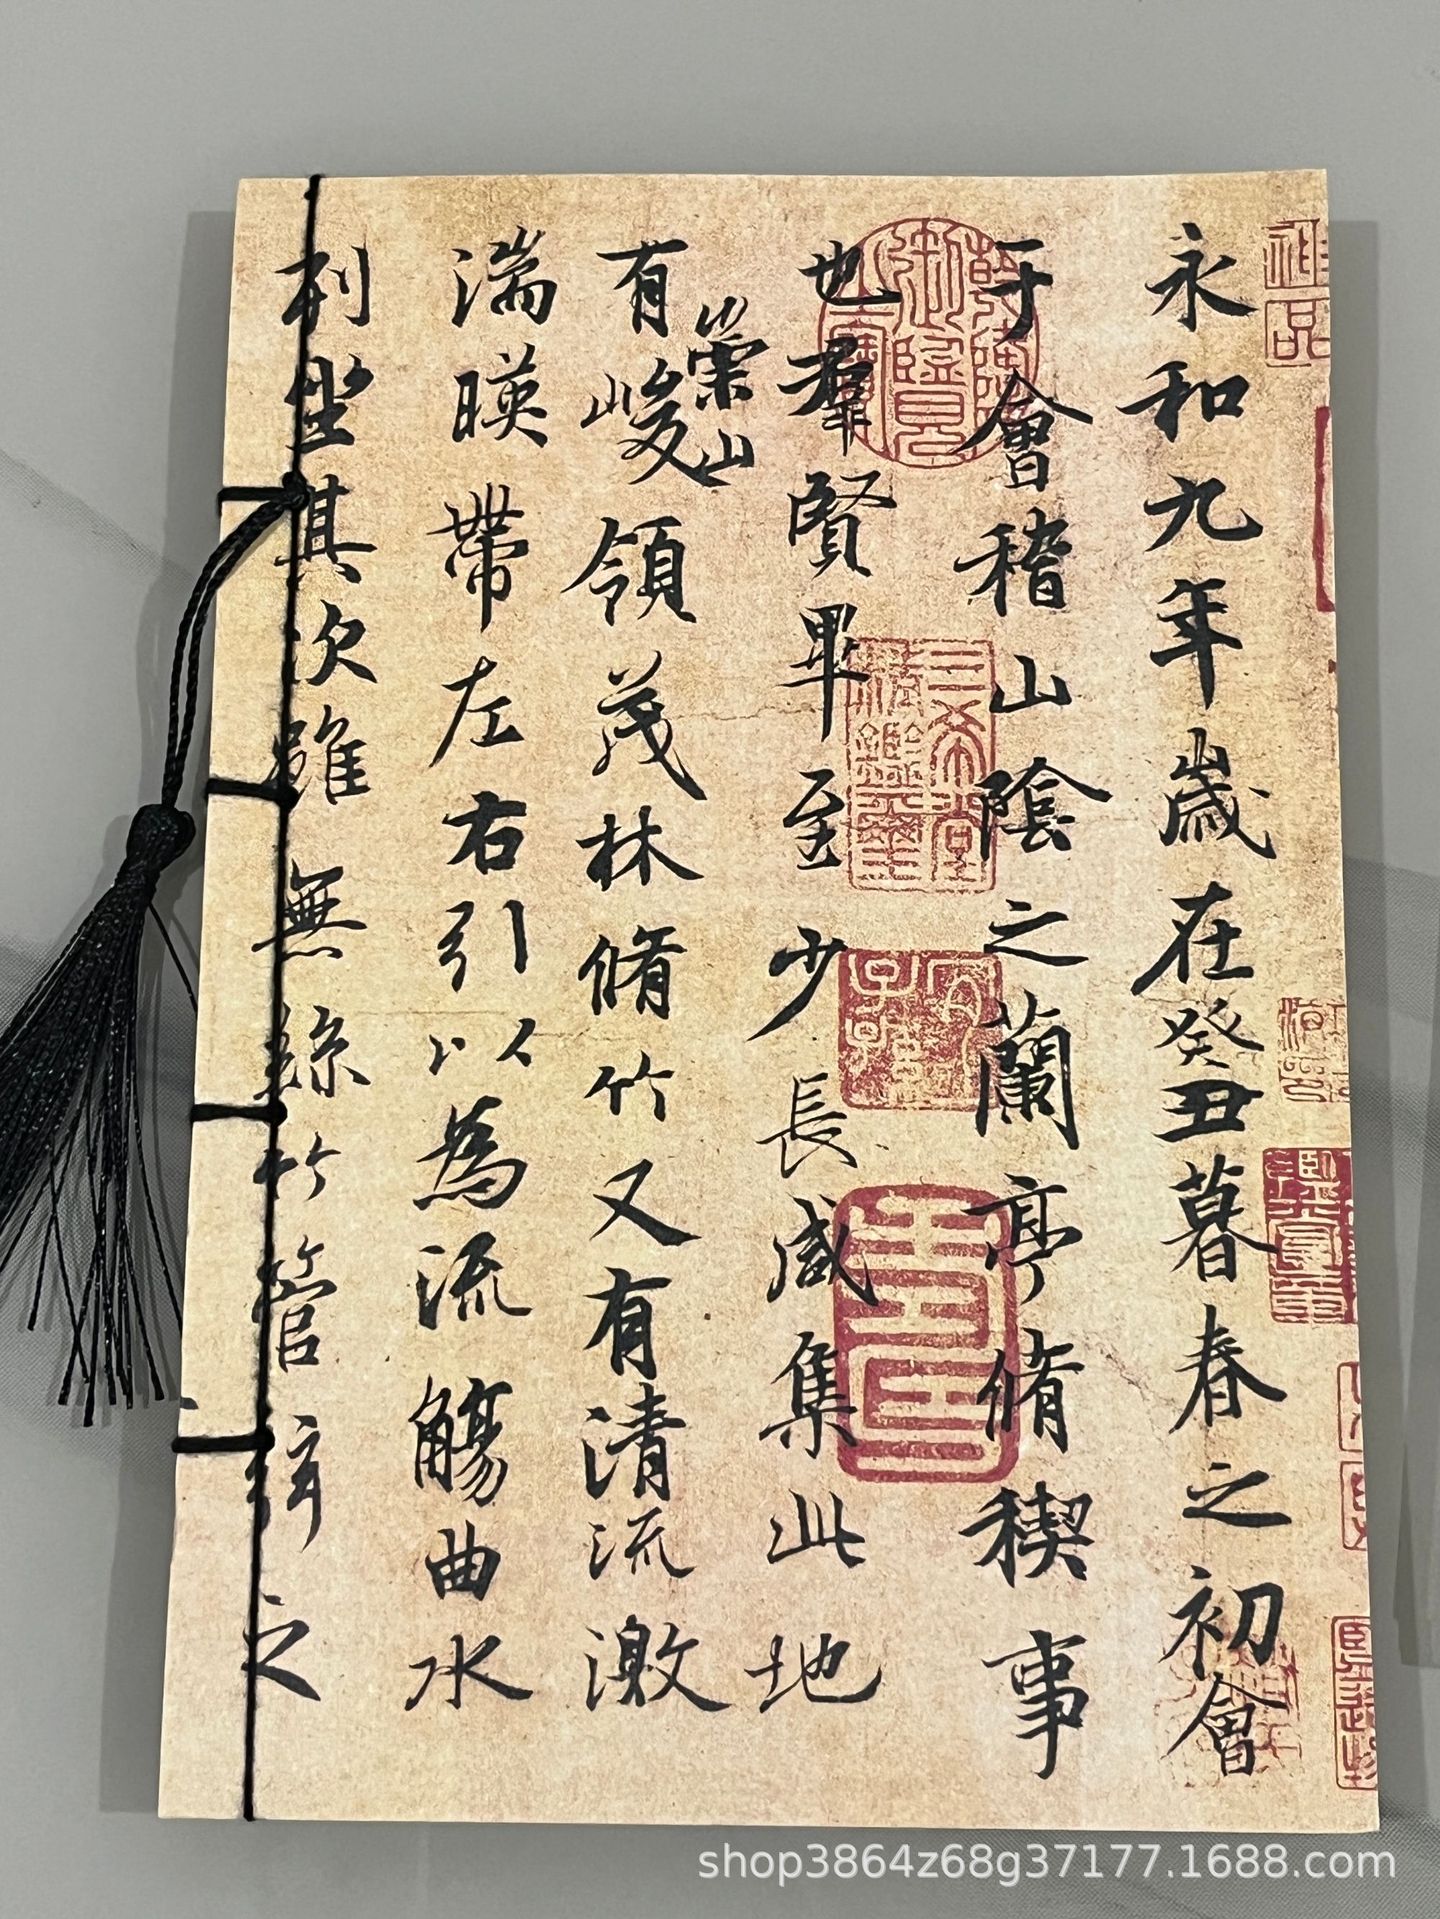 永和九年歲在癸丑暮春之初會
于會稽山陰之蘭亭脩稧事
也羣賢畢至少長咸集此地
有崇山峻領茂林脩竹又有清流激
湍暎帶左右引以為流觴曲水
列坐其次雖無絲竹管弦之
神品
三希堂精鑑璽
宜子孫
shop3864z68g37177.1688.com